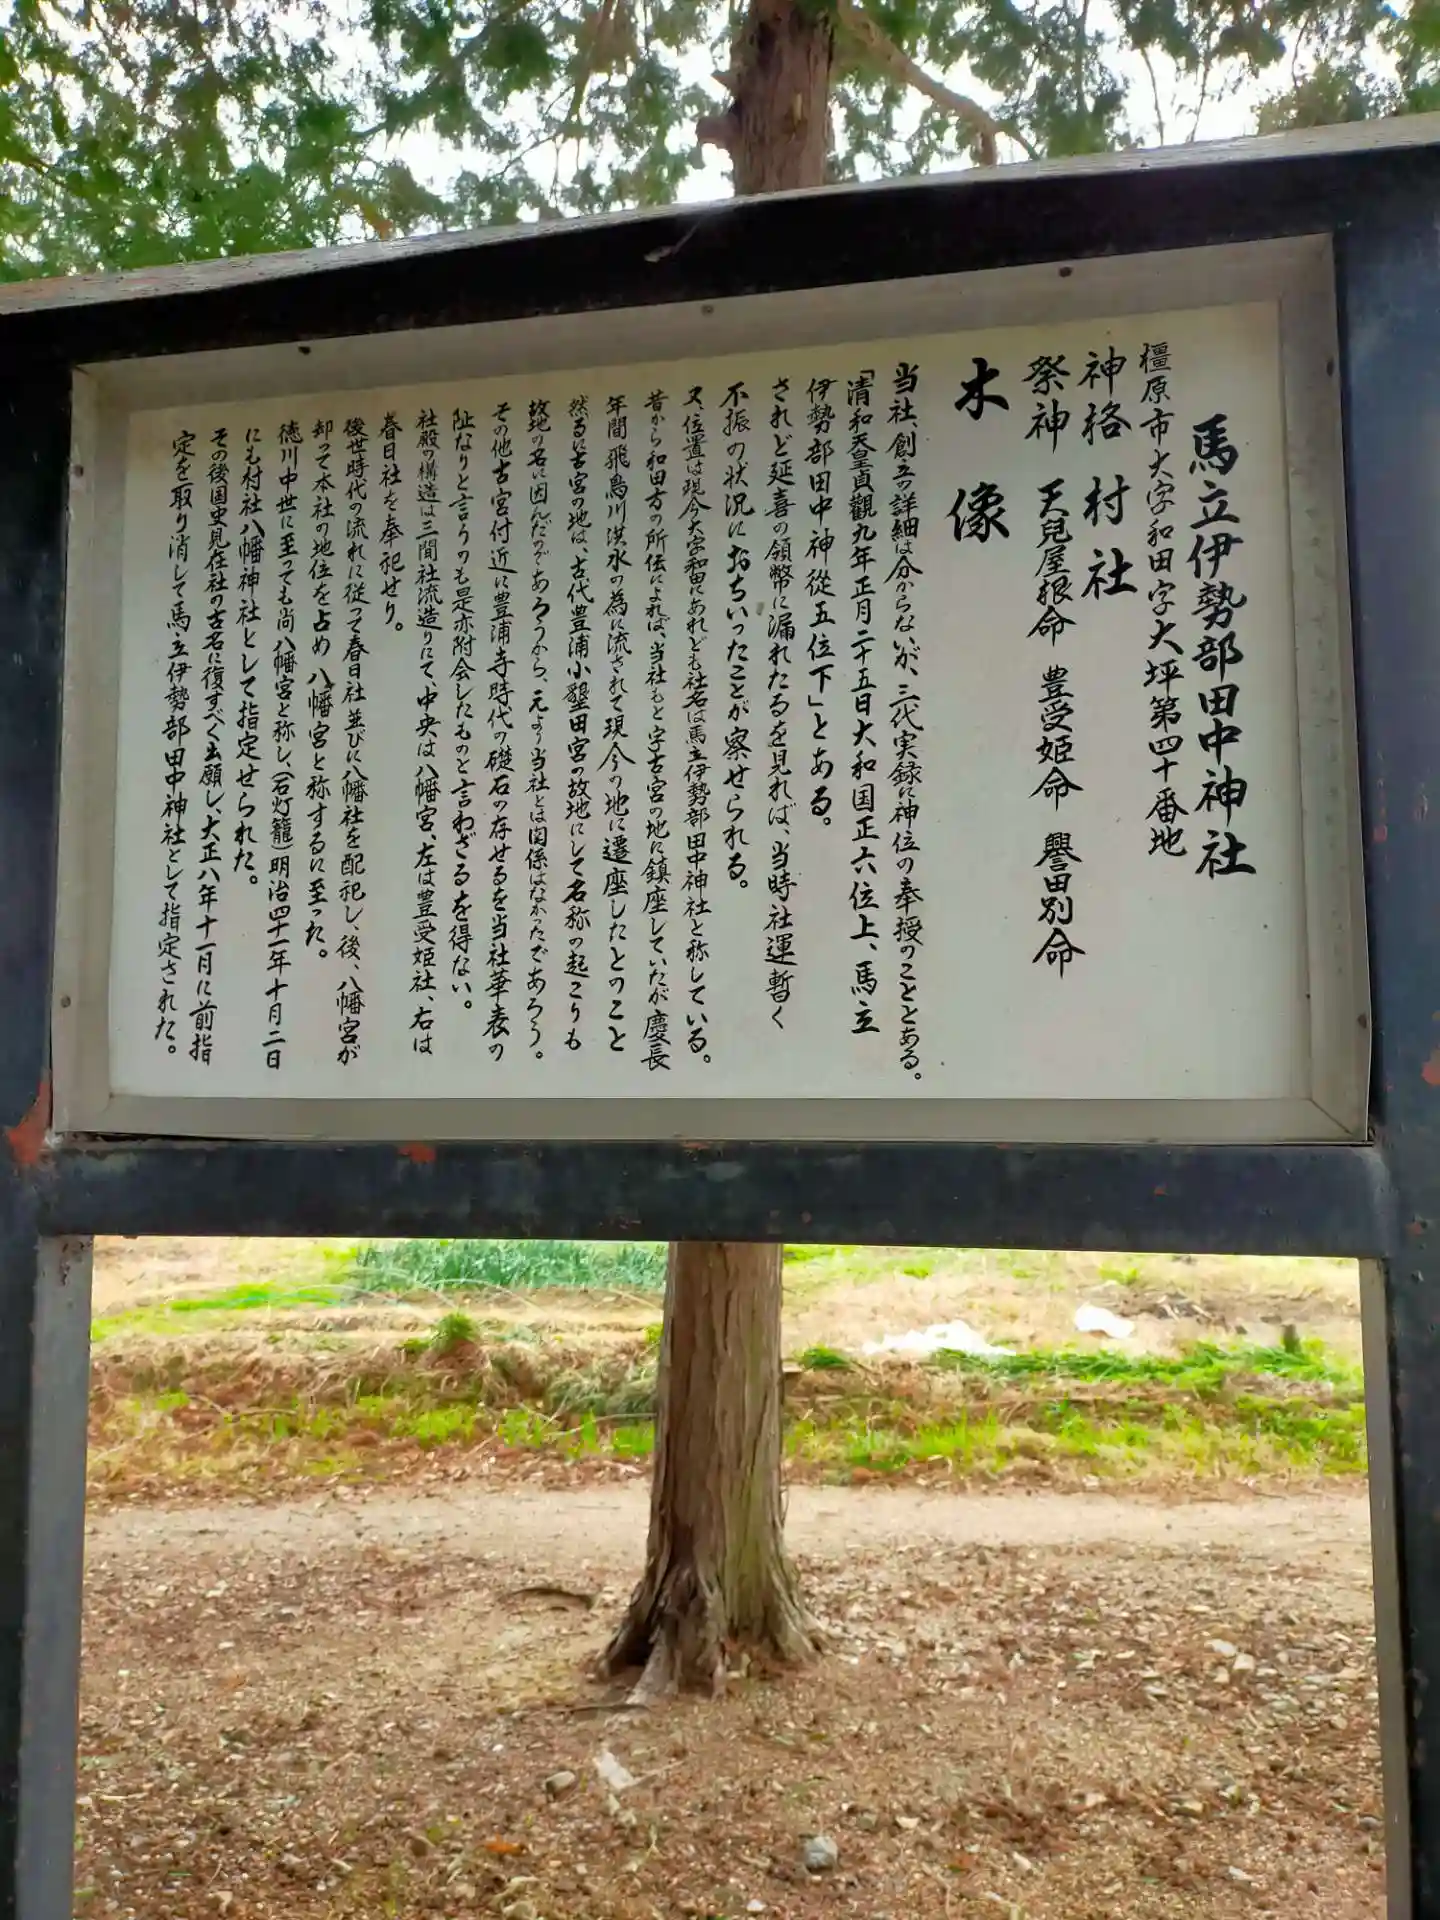 馬立伊勢部田中神社
橿原市大字和田字大坪第四十番地
神格 村社
祭神 天兒屋根命 豊受姫命 譽田別命
木像
当社、創立の詳細は分からないが、三代実録に神位の奉授のこととある。
「清和天皇貞觀九年正月二十五日大和国正六位上、馬立
伊勢部田中神従五位下」とある。
されど延喜の領幣に漏れたるを見れば、当時社運暫く
不振の状況におちいったことが察せられる。
又、位置は現今大字和田にあれども社名は馬立伊勢部田中神社と称している。
昔から和田方の所伝によれば、当社もと字古宮の地に鎮座していたが慶長
年間飛鳥川洪水の為に流されて現今の地に遷座したとのこと
然るに古宮の地は、古代豊浦小墾田宮の故地にして名称の起こりも
故地の名に因んだのであろうから、元より当社とは関係はなかったであろう。
その他古宮付近に豊浦寺時代の礎石の存せるを当社華表の
阯なりと言うのも是亦附会したものと言わざるを得ない。
社殿の構造は三間社流造りにて、中央は八幡宮、左は豊受姫社、右は
春日社を奉祀せり。
後世時代の流れに従って春日社並びに八幡社を配祀し、後、八幡宮が
却って本社の地位を占め八幡宮と称するに至った。
徳川中世に至っても尚八幡宮と称し、(石灯籠)明治四十一年十月二日
にも村社八幡神社として指定せられた。
その後国史見在社の古名に復すべく出願し、大正八年十一月に前指
定を取り消して馬立伊勢部田中神社として指定された。